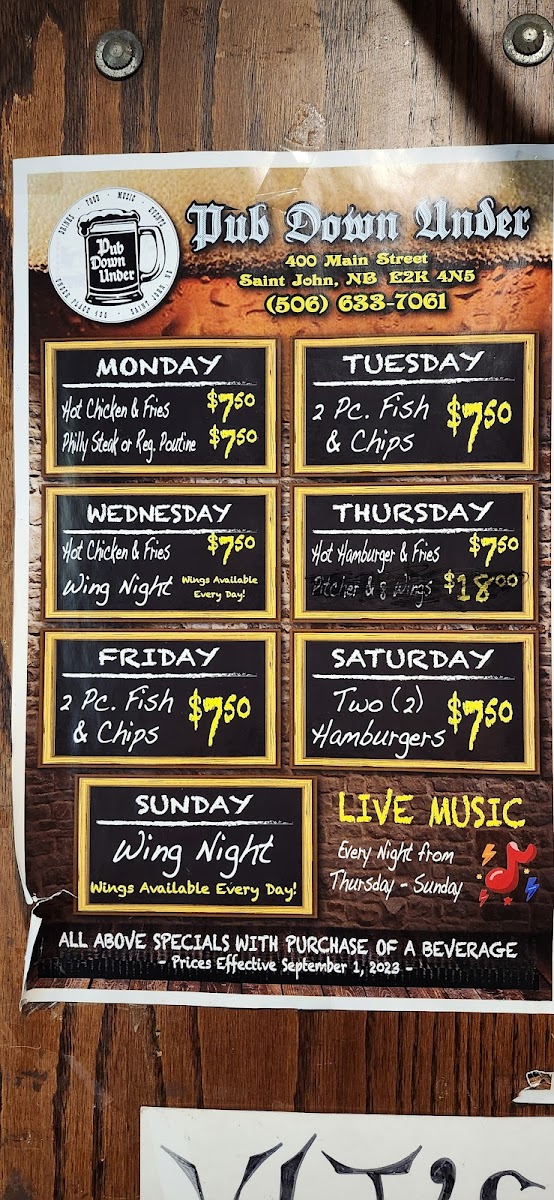 DRINKS · FOOD · MUSIC · EVENTS
Pub
Down
Under
SAINT JOHN NB
Pub Down Under
400 Main Street
Saint John, NB E2K 4N5
(506) 633-7061
MONDAY
Hot Chicken & Fries $7.50
Philly Steak or Reg. Poutine $7.50
TUESDAY
2 Pc. Fish
& Chips $7.50
WEDNESDAY
Hot Chicken & Fries $7.50
Wing Night Wings Available
Every Day!
THURSDAY
Hot Hamburger & Fries $7.50
Pitcher & 8 Wings $18.00
FRIDAY
2 Pc. Fish
& Chips $7.50
SATURDAY
Two (2)
Hamburgers $7.50
SUNDAY
Wing Night
Wings Available Every Day!
LIVE MUSIC
Every Night from
Thursday - Sunday
ALL ABOVE SPECIALS WITH PURCHASE OF A BEVERAGE
- Prices Effective September 1, 2023 -